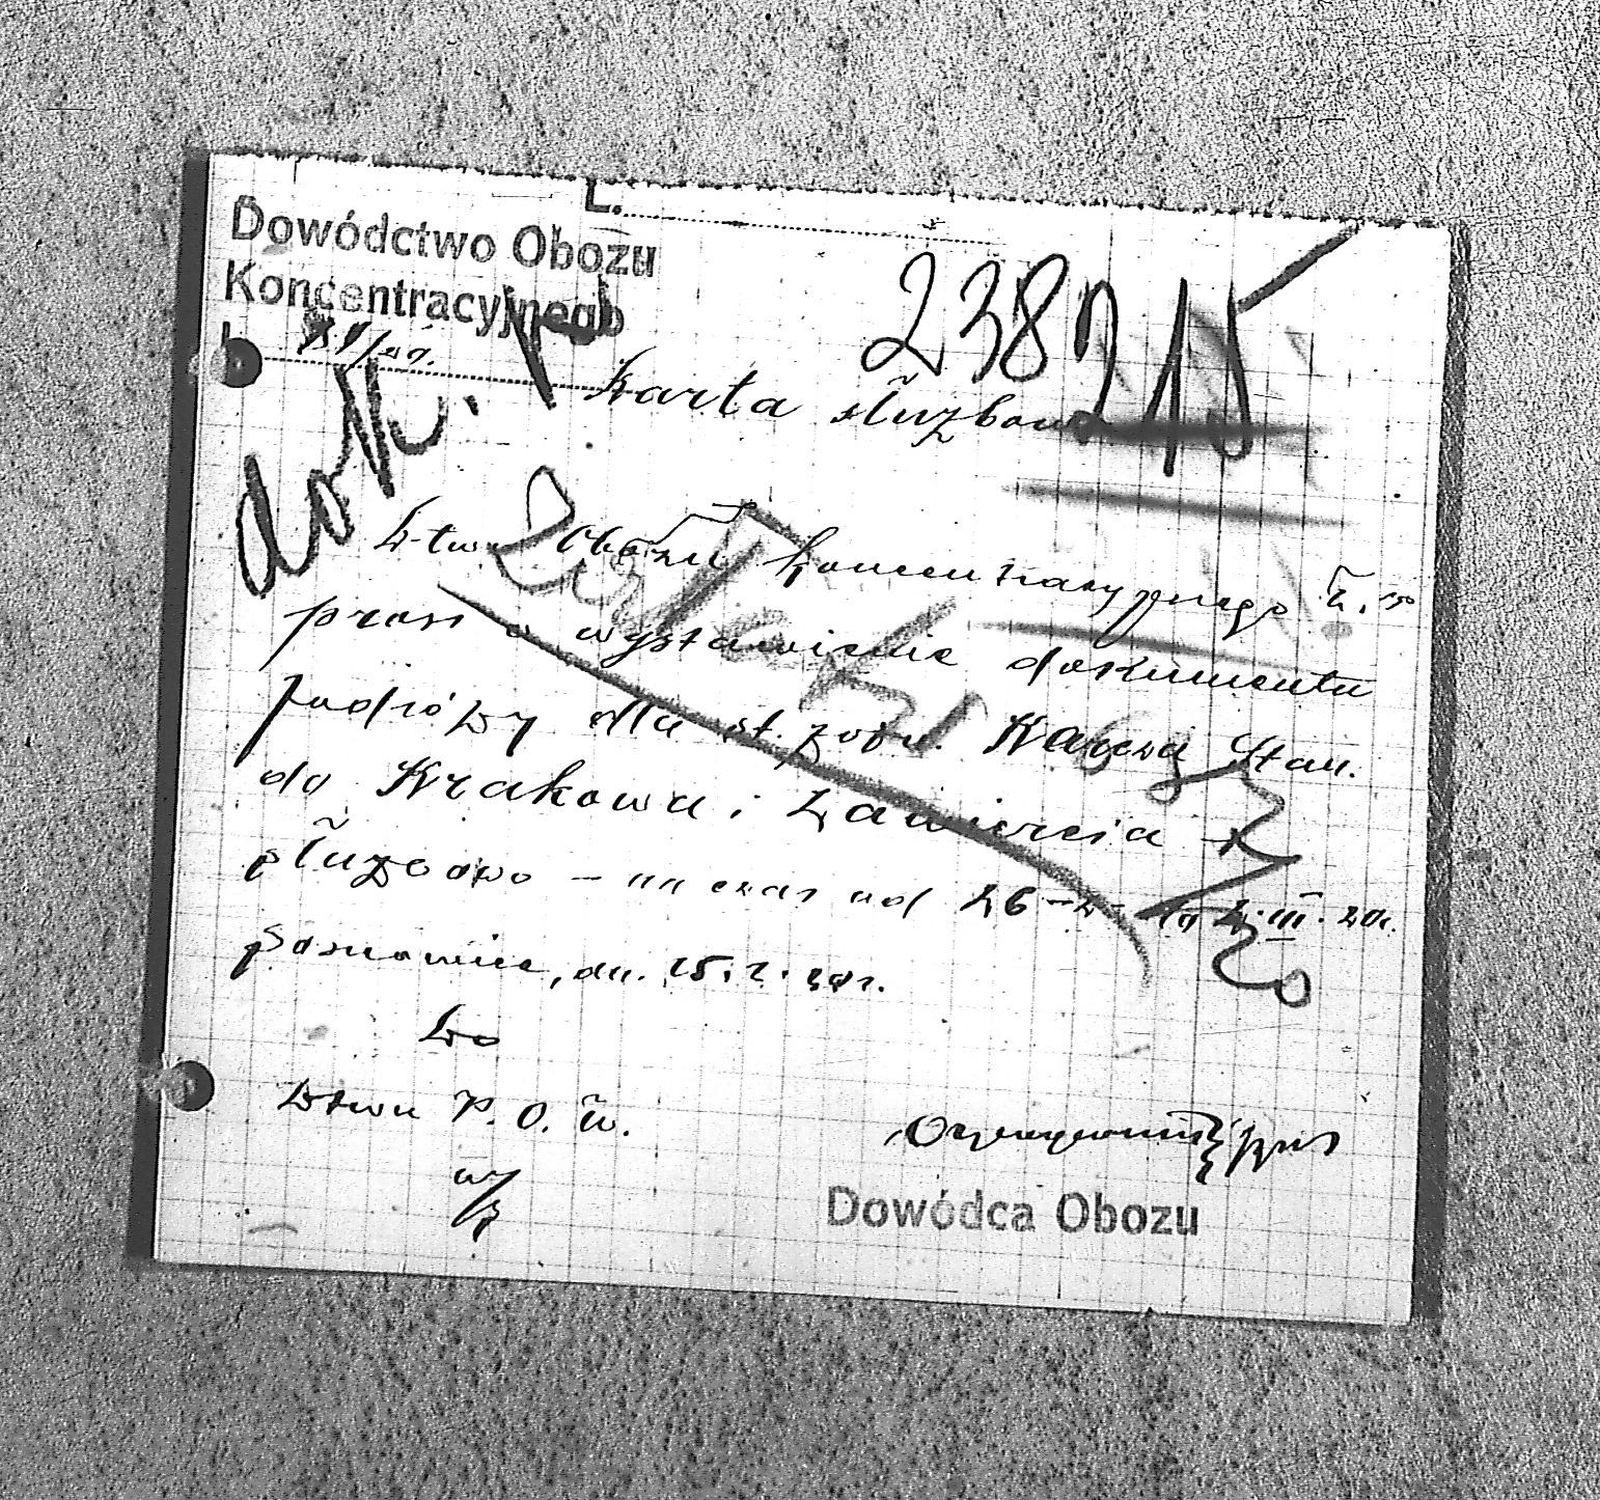 L.
Dowództwo Obozu
Koncentracyjnego
238215
Karta służbowa
dok.
D-two Obozu koncentracyjnego
prosi o wystawienie dokumentu
podróży dla st. żołn. Stan.
do Krakowa i Zawiercia
służbowo - na czas od 26-2- III. 20r.
Sosnowice, dn. 25.2.
Do
Dtwa P. O. U.
w/m
Dowódca Obozu